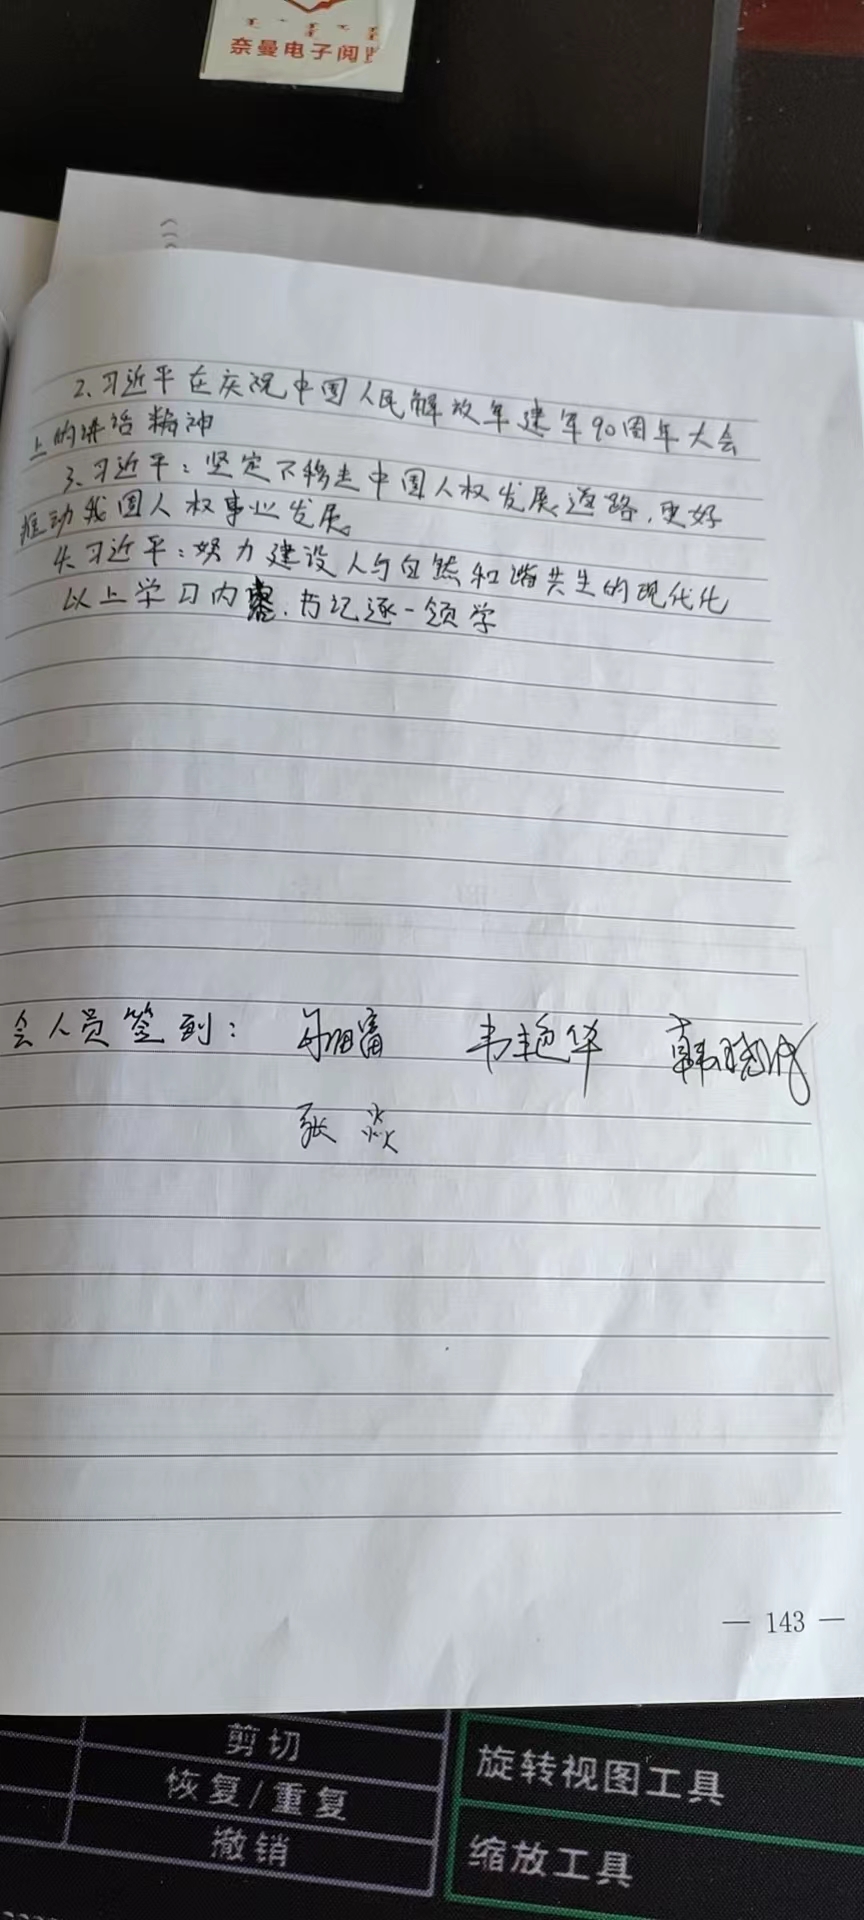 奈曼电子阅
2、习近平在庆祝中国人民解放军建军90周年大会
上的讲话精神
3、习近平：坚定不移走中国人权发展道路，更好
推动我国人权事业发展
4、习近平：努力建设人与自然和谐共生的现代化
以上学习内容，书记逐一领学
会人员签到：
韦艳华
张焱
— 143 —
剪切
恢复/重复
撤销
旋转视图工具
缩放工具